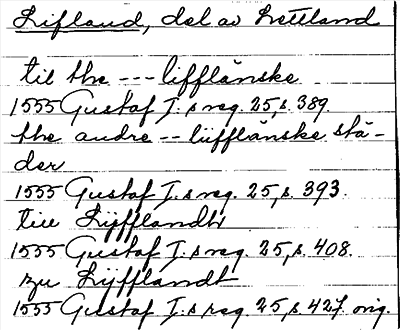 Lifland, del av Lettland
til the --- lifflänske
1555 Gustaf I:s reg. 25, s. 389.
the andre -- liifflänske stä-
der
1555 Gustaf I:s reg. 25, s. 393.
till Lijfflandh
1555 Gustaf I:s reg. 25, s. 408.
zu Lijfflandt
1555 Gustaf I:s reg. 25, s. 427. orig.